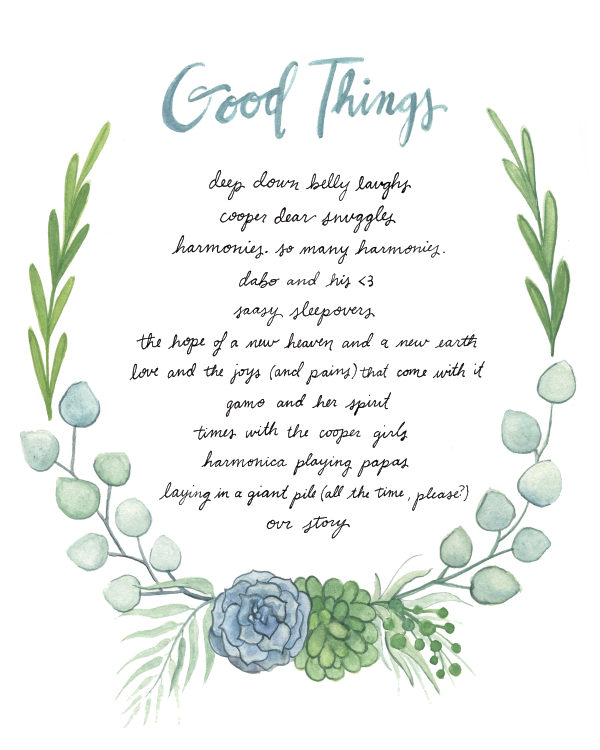 Good Things
deep down belly laughs
cooper dear snuggles
harmonies. so many harmonies.
dabo and his <3
saasy sleepovers
the hope of a new heaven and a new earth
love and the joys (and pains) that come with it
gamo and her spirit
times with the cooper girls
harmonica playing papas
laying in a giant pile (all the time, please?)
our story